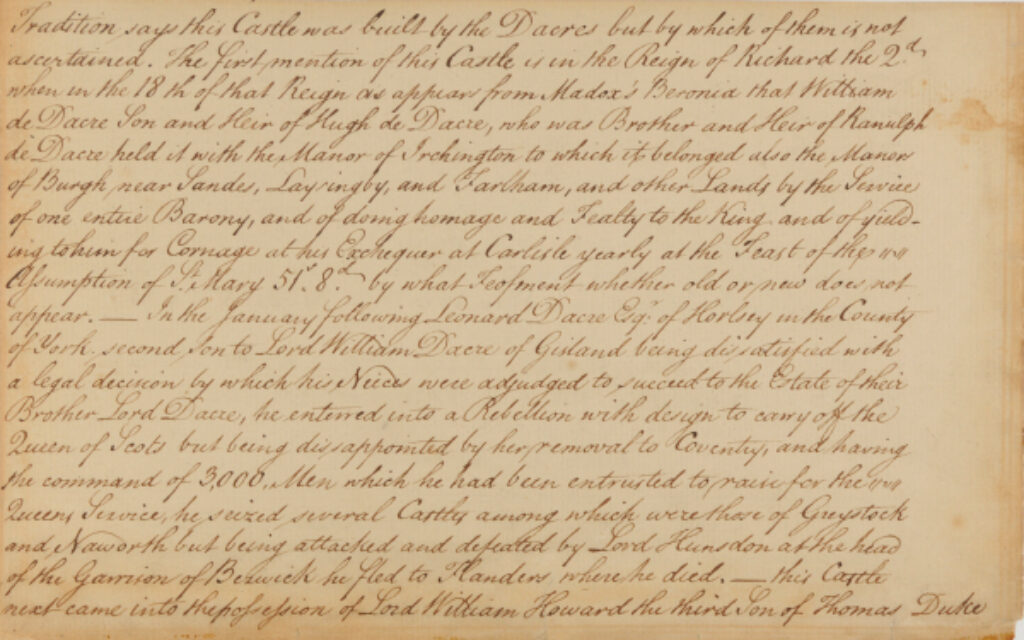 Tradition says this Castle was built by the Dacres but by which of them is not
ascertained. The first mention of this Castle is in the Reign of Richard the 2.d
when in the 18th of that Reign as appears from Madox's Beronia that William
de Dacre Son and Heir of Hugh de Dacre, who was Brother and Heir of Ranulph
de Dacre held it with the Manor of Irchington to which it belonged also the Manors
of Burgh near Sandes, Laysingby, and Farlham, and other Lands by the Service
of one entire Barony, and of doing homage and Fealty to the King and of yield-
ing to him for Cornage at his Exchequer at Carlisle yearly at the Feast of the
Assumption of St. Mary 51s. 8.d by what Feofment whether old or new does not
appear. — In the January following Leonard Dacre Esqr. of Horlsey in the County
of York second Son to Lord William Dacre of Gisland being dissatisfied with
a legal decision by which his Neices were adjudged to succeed to the Estate of their
Brother Lord Dacre, he enterred into a Rebellion with design to carry off the
Queen of Scots but being dissappointed by her removal to Coventry, and having
the command of 3,000, Men which he had been entrusted to raise for the
Queens Service, he seized several Castles among which were those of Greystock
and Naworth but being attacked and defeated by Lord Hunsdon at the head
of the Garrison of Berwick he fled to Flanders where he died. — this Castle
next came into the possession of Lord William Howard the third Son of Thomas Duke